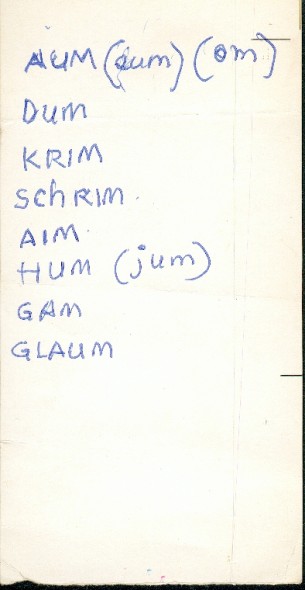 AUM (aum) (om)
DUM
KRIM
SchRIM.
AIM.
HUM (jum)
GAM
GLAUM